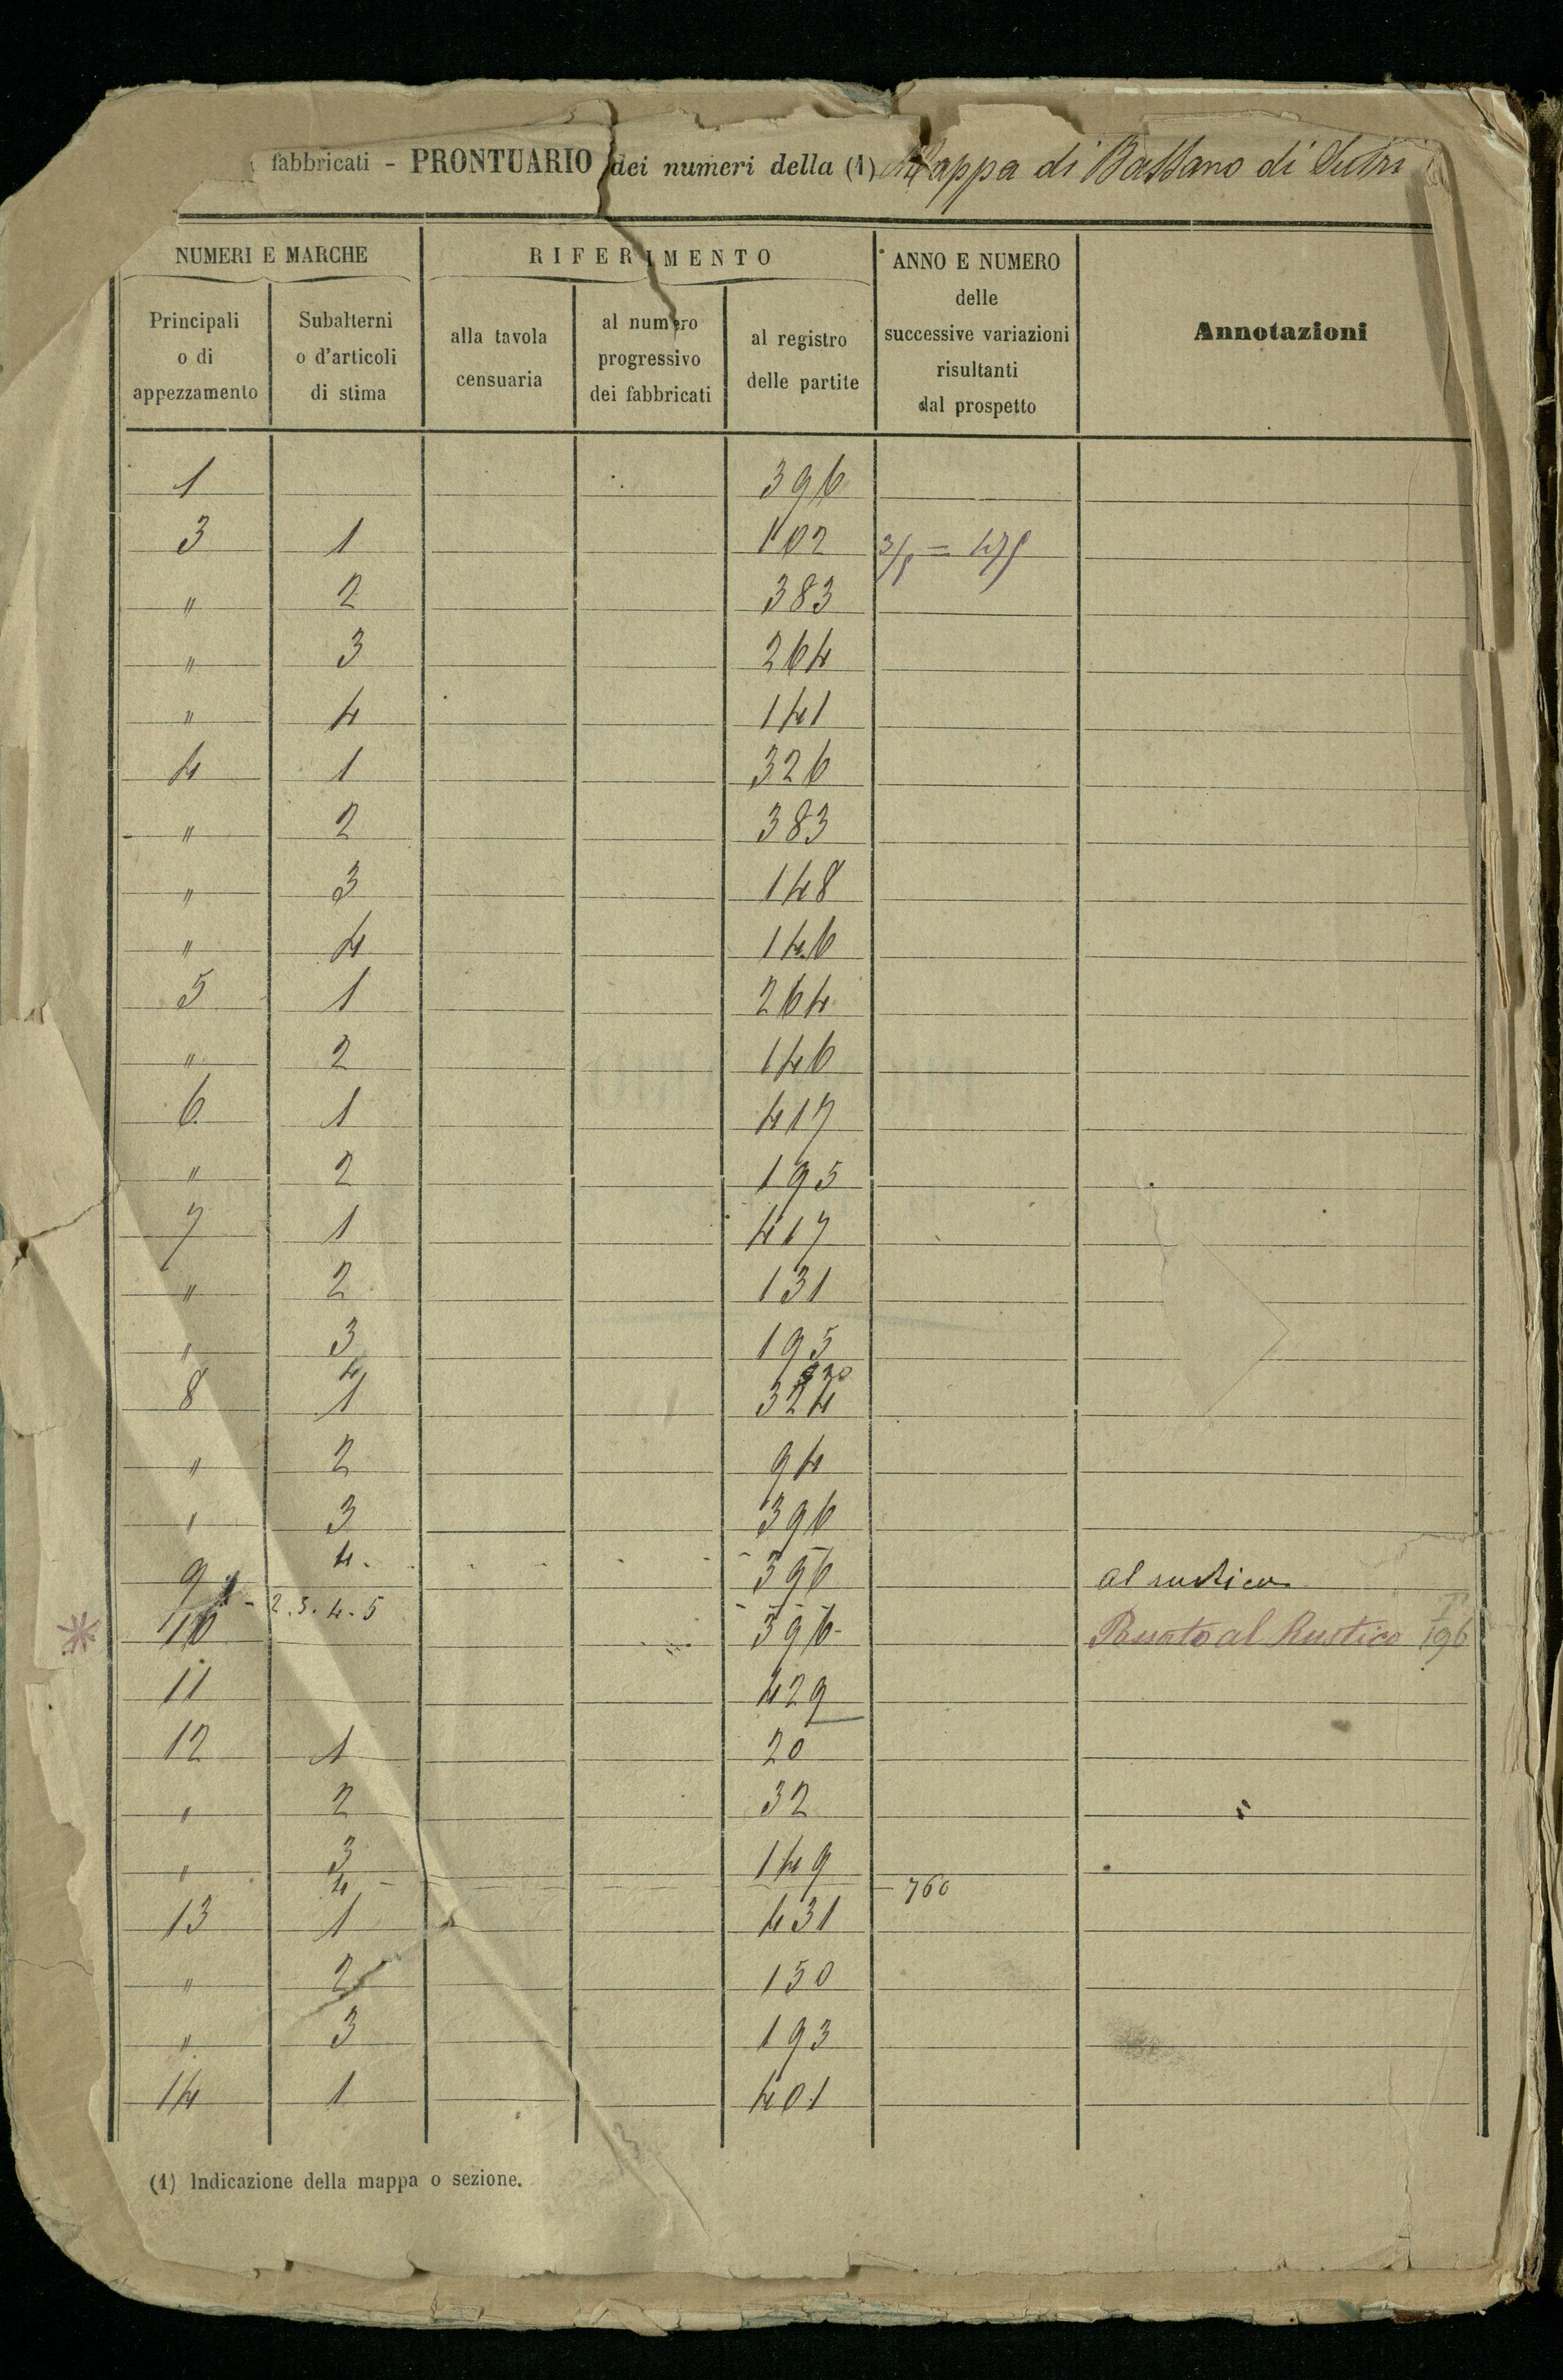 fabbricati - PRONTUARIO dei numeri della (1) Mappa di Bassano di Sutri
NUMERI E MARCHE RIFERIMENTO ANNO E NUMERO delle successive variazioni risultanti dal prospetto Annotazioni
Principali o di appezzamento Subalterni o d'articoli di stima alla tavola censuaria al numero progressivo dei fabbricati al registro delle partite
1 396
3 1 102
" 2 383
" 3 264
" 4 141
4 1 326
" 2 383
" 3 148
" 4 146
5 1 264
" 2 146
6 1 417
" 2 195
7 1 417
" 2 131
" 3 195
4 930
8 1 324
" 2 94
" 3 396
4.
9 396 al rustico
- 2.3.4.5
10 396 al Rustico 196
11 429
12 1 20
" 2 32
" 3 149
4 - 760
13 1 431
" 2 150
" 3 193
14 1 401
(1) Indicazione della mappa o sezione.